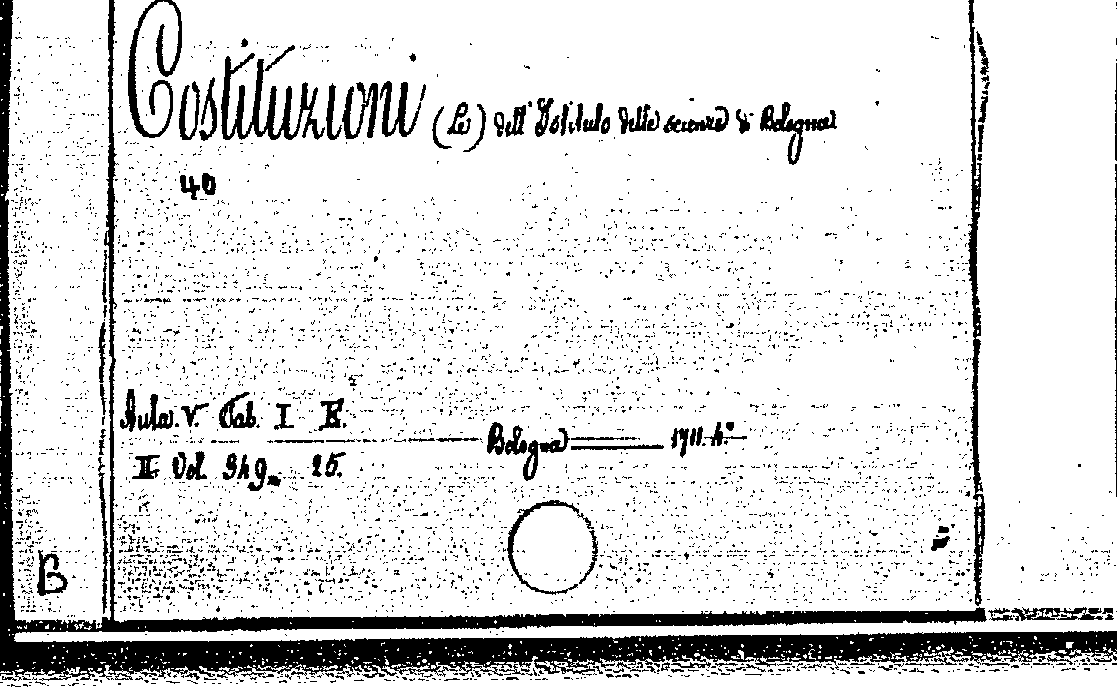 Costituzioni (Le) dell'Istituto delle scienze di Bologna
40
Aula. V. Tab. I. E.
Bologna 1711. 4.°
II Vol. 349 25.
B